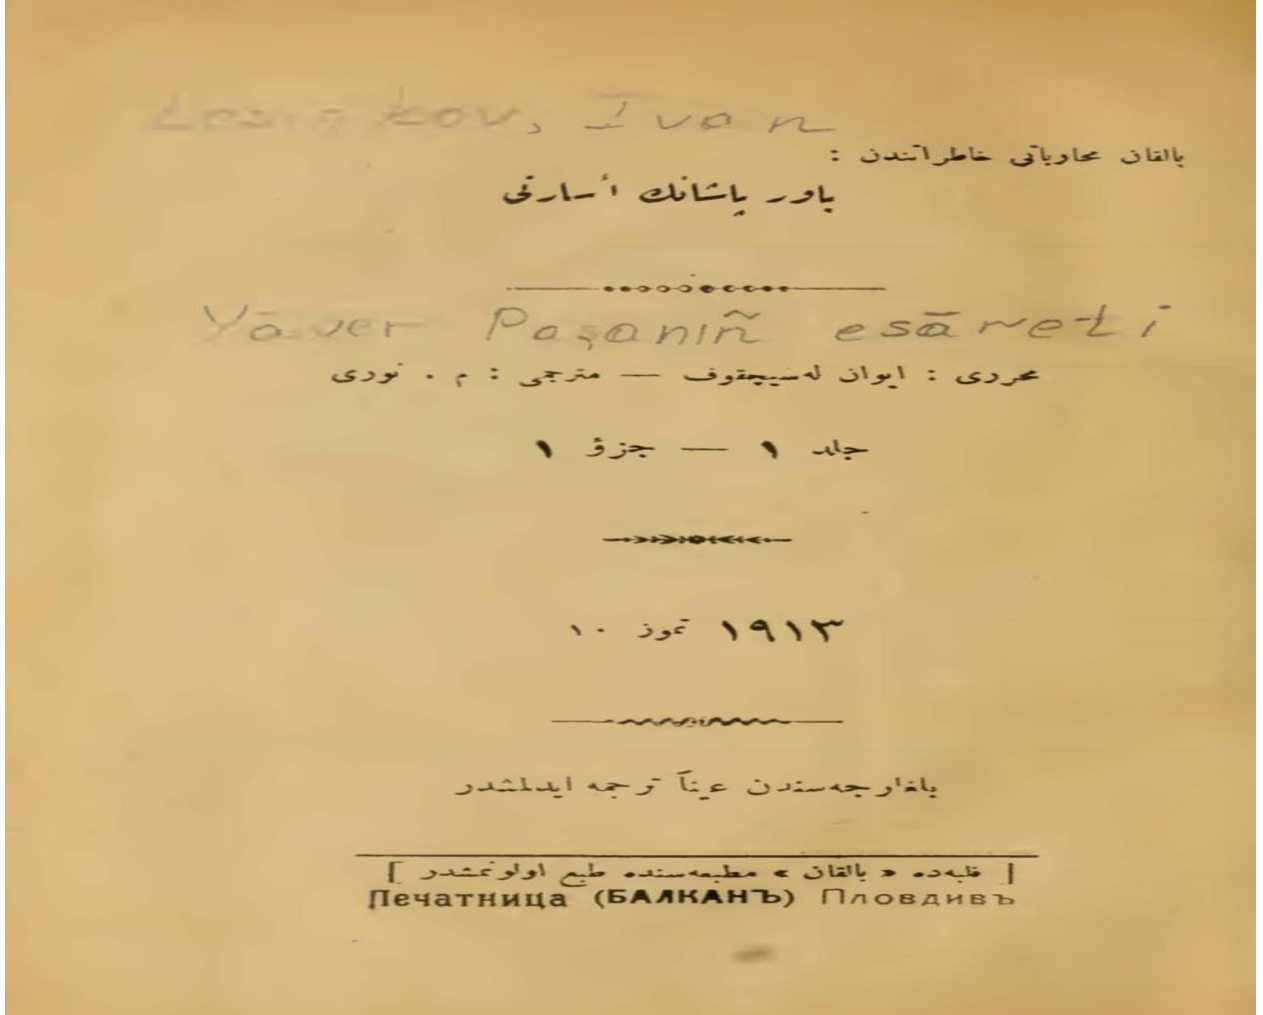 Ivan
بالقان محارباتی خاطراتندن :
یاور پاشانك أسارتی
Yāver Paşanıñ esāreti
محرری : ایوان له‌سیچقوف — مترجمی : م . نوری
جلد ١ — جزؤ ١
١٩١٣ تموز ١٠
بلغارجه‌سندن عیناً ترجمه ایدلمشدر
[ فلبه‌ده « بالقان » مطبعه‌سنده طبع اولونمشدر ]
Печатница (БАЛКАНЪ) Пловдивъ